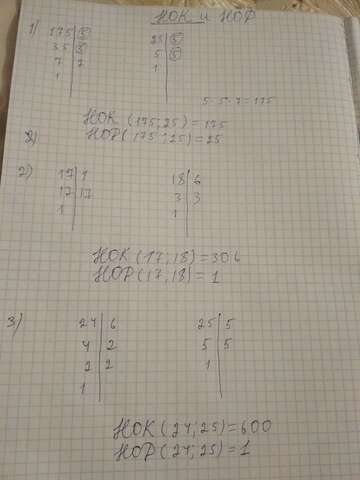 НОК и НОД
1) 175 | 5    25 | 5
35 | 5    5 | 5
7 | 7    1
1
5·5·7=175
НОК (175; 25) = 175
2)
НОД (175; 25) = 25
2) 17 | 1    18 | 6
17 | 17    3 | 3
1    1
НОК (17; 18) = 306
НОД (17, 18) = 1
3) 24 | 6    25 | 5
4 | 2    5 | 5
2 | 2    1
1
НОК (24; 25) = 600
НОД (24; 25) = 1